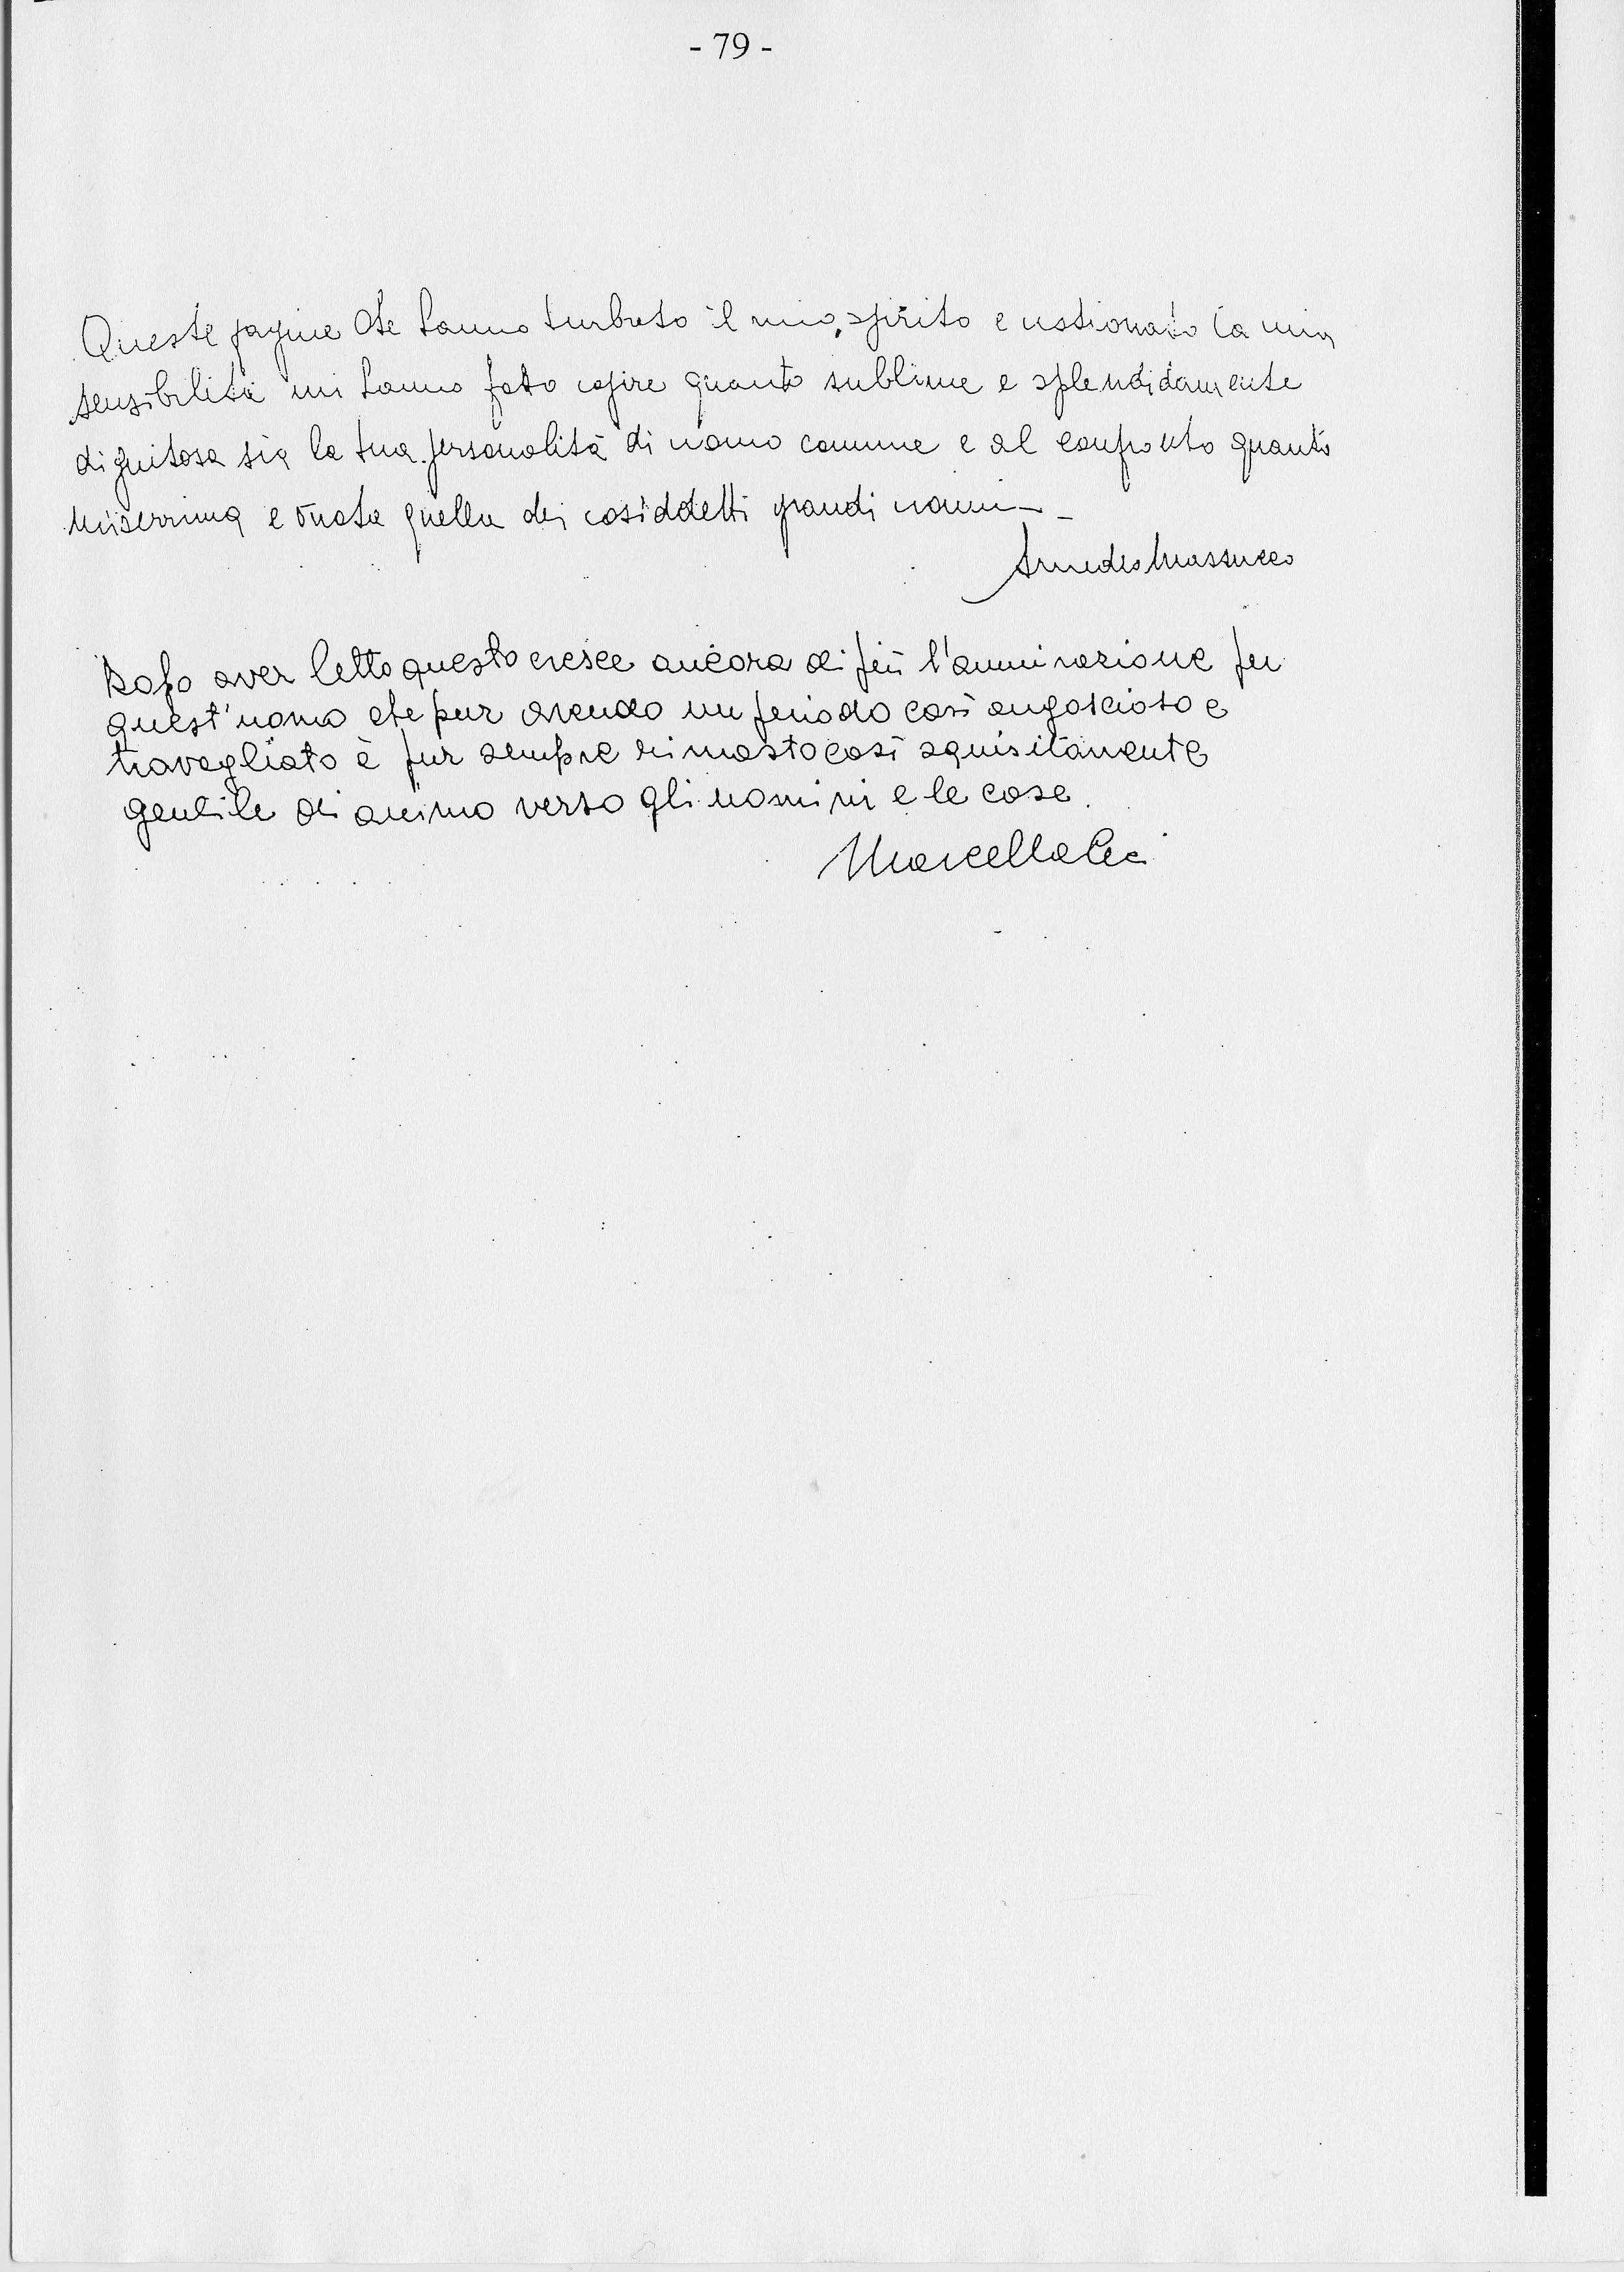 - 79 -
Queste pagine che hanno turbato il mio spirito e ustionato la mia
sensibilità mi hanno fato capire quanto sublime e splendidamente
dignitosa sia la tua personalità di uomo comune e al confronto quanto
miserrima e vuota quella dei cosiddetti grandi uomini -
Amedeo Massucco
Dopo aver letto questo cresce ancora di più l'ammirazione per
quest'uomo che pur avendo un periodo così angoscioso e
travagliato è pur sempre rimasto così squisitamente
gentile di animo verso gli uomini e le cose.
Marcella